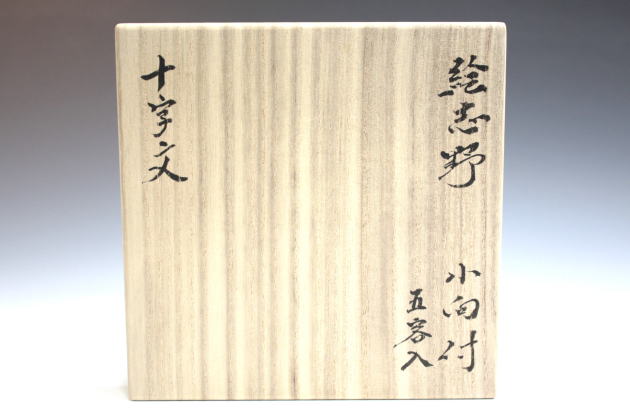 絵志野
小向付
五客入
十字文